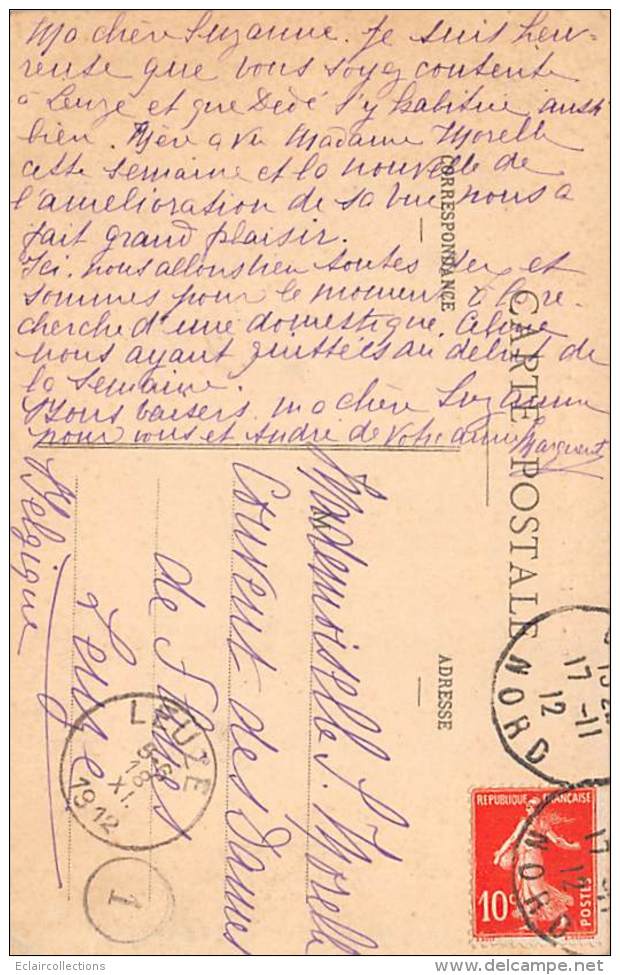 Ma chère Suzanne. Je suis heu-
reuse que vous soyez contente
à Leuze et que Dédé s'y habitue aussi
bien. Mère a vu Madame Morelle
cette semaine et la nouvelle de
l'amelioration de sa vue nous a
fait grand plaisir.
Ici. nous allons bien toutes deux et
sommes pour le moment à la re-
cherche d'une domestique. Celine
nous ayant quittées au debut de
la semaine.
Bons baisers ma chère Suzanne
pour vous et André de votre amie Marguerite
CORRESPONDANCE
CARTE POSTALE
ADRESSE
Mademoiselle S. Morelle
Couvent des Dames
de St
Leuze
Belgique
LEUZE
18
XI.
1912
1
NORD
17-11
12
REPUBLIQUE FRANÇAISE
10c
POSTES
17-11
12
NORD
Eclaircollections
www.delcampe.net